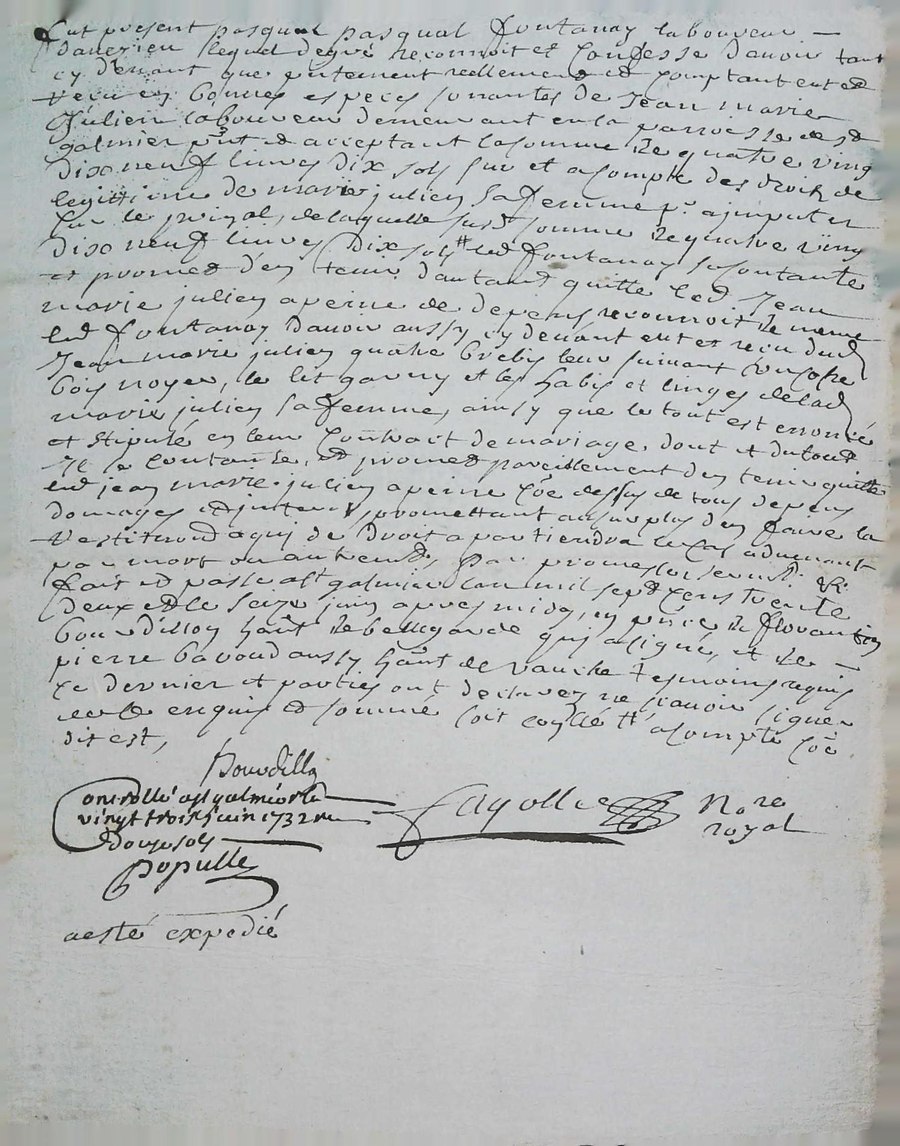 fut present pasqual pasqual fontanay laboureur
d'aveizieu lequel de gré reconnoit et confesse d'avoir tant
cy devant que presentement reellement et comptant eut et
receu en bonnes especes sonnantes de Jean marie
Julien laboureur demeurant en la parroisse de st
galmier pnt et acceptant la somme de quatre ving
dix neuf livres dix sols sur et a compte des droits de
legittime de marie julien sa femme pr. ajmputer
sur le prinpal, de laquelle susd. somme de quatre ving
dix neuf livres dix sols # led fontanay se contante
et promet d'en tenir d'autant quitte led Jean
marie julien a peine de depens reconnoit de meme
led fontanay d'avoir aussy cy devant eut et receu dud
Jean marie julien quatre brebis leur suivant un cofre
bois noyer, le lit garny et les habis et linges de lad
marie julien sa femme, ainsy que le tout est enoncé
et stipulé en leur contrait de mariage, dont et du tout
Il se contante, et promet pareillement d'en tenir quitte
led jean marie julien a peine coe dessus de tous depens
domages et jnterets, promettant au surplus d'en faire la
restitund a qui de droit apartiendra le cas advenant
par mort ou autremt, Par promesses sermt. &c
fait et passé a st galmier l'an mil sept cens trente
deux et le seize juin apres midy, en pnce de florantin
bourdillon habt de bellegarde qui a signé, et de
pierre bavoud aussy habt de vauche temoins requis
ce dernier et parties ont declarez ne scavoir signer
de ce enquis et sommé soit controllé # a compte coe
dit est,
Bourdillon
Controllé a st galmier le
vingt trois juin 1732 reçu
Douze sols
Populle
Fayolle Nore
royal
a esté expedié